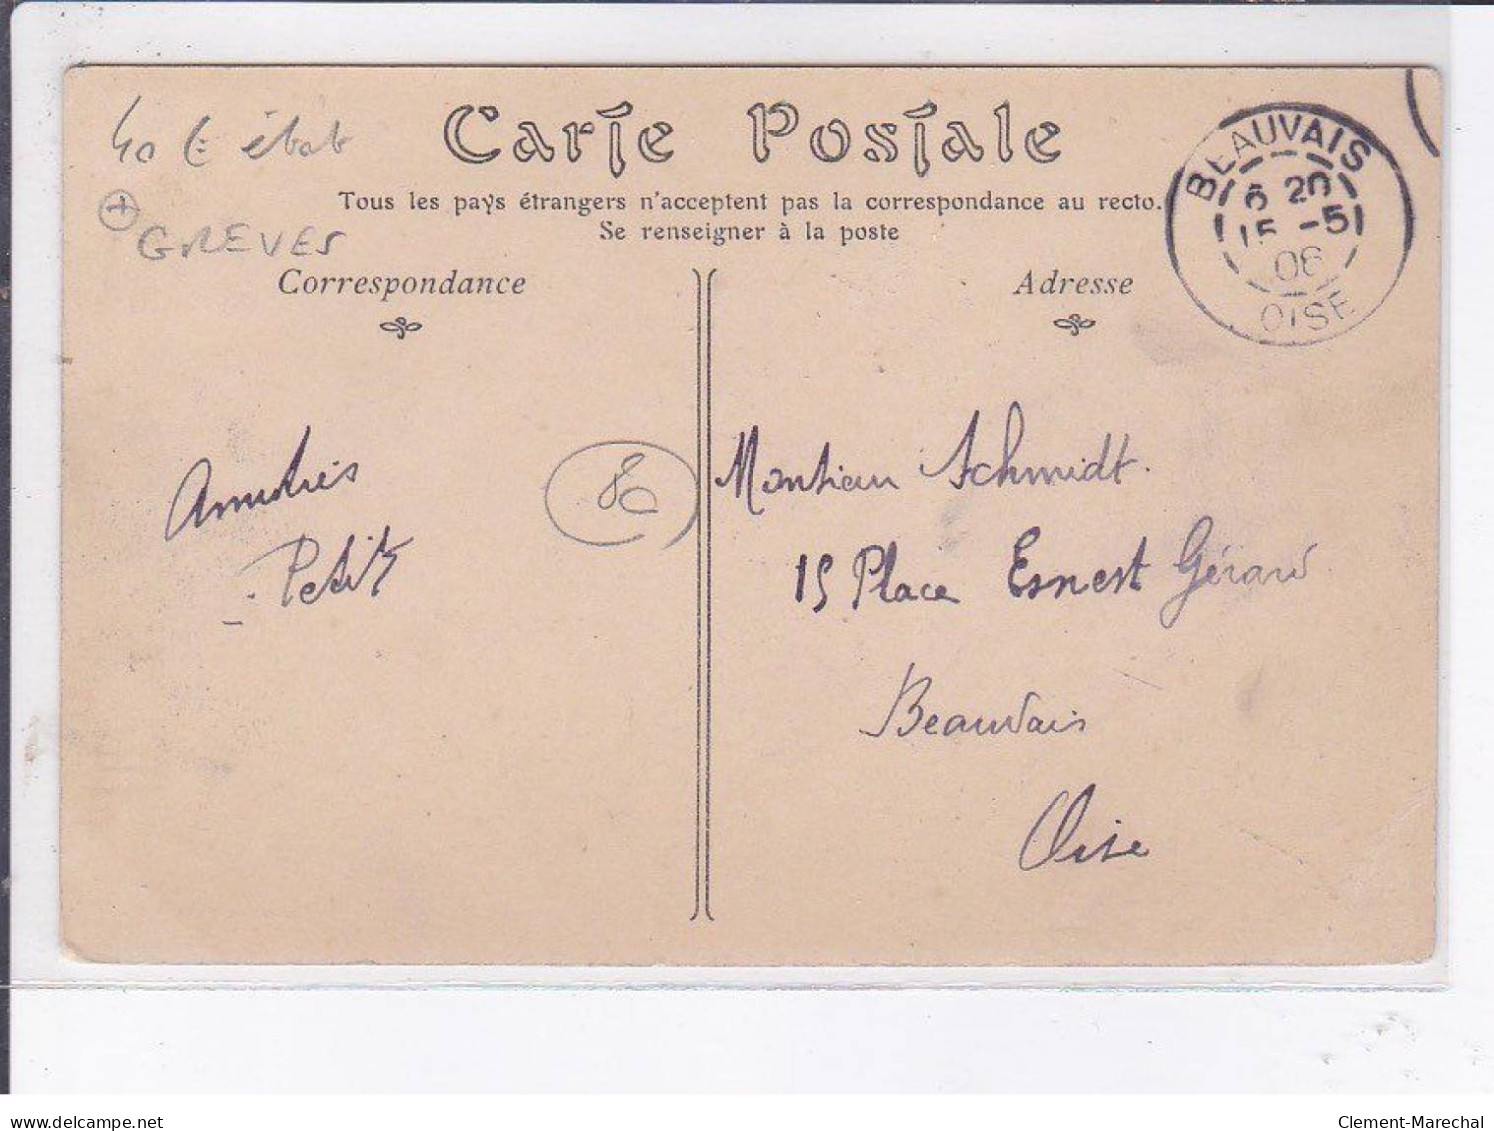 40 € état
GREVES
Carte Postale
Tous les pays étrangers n'acceptent pas la correspondance au recto.
Se renseigner à la poste
Correspondance
Adresse
BEAUVAIS
6 20
15 -5
06
OISE
Amitiés
Petit
80
Monsieur Schmidt.
15 Place Ernest Gérard
Beauvais
Oise
delcampe.net
Clement-Marechal